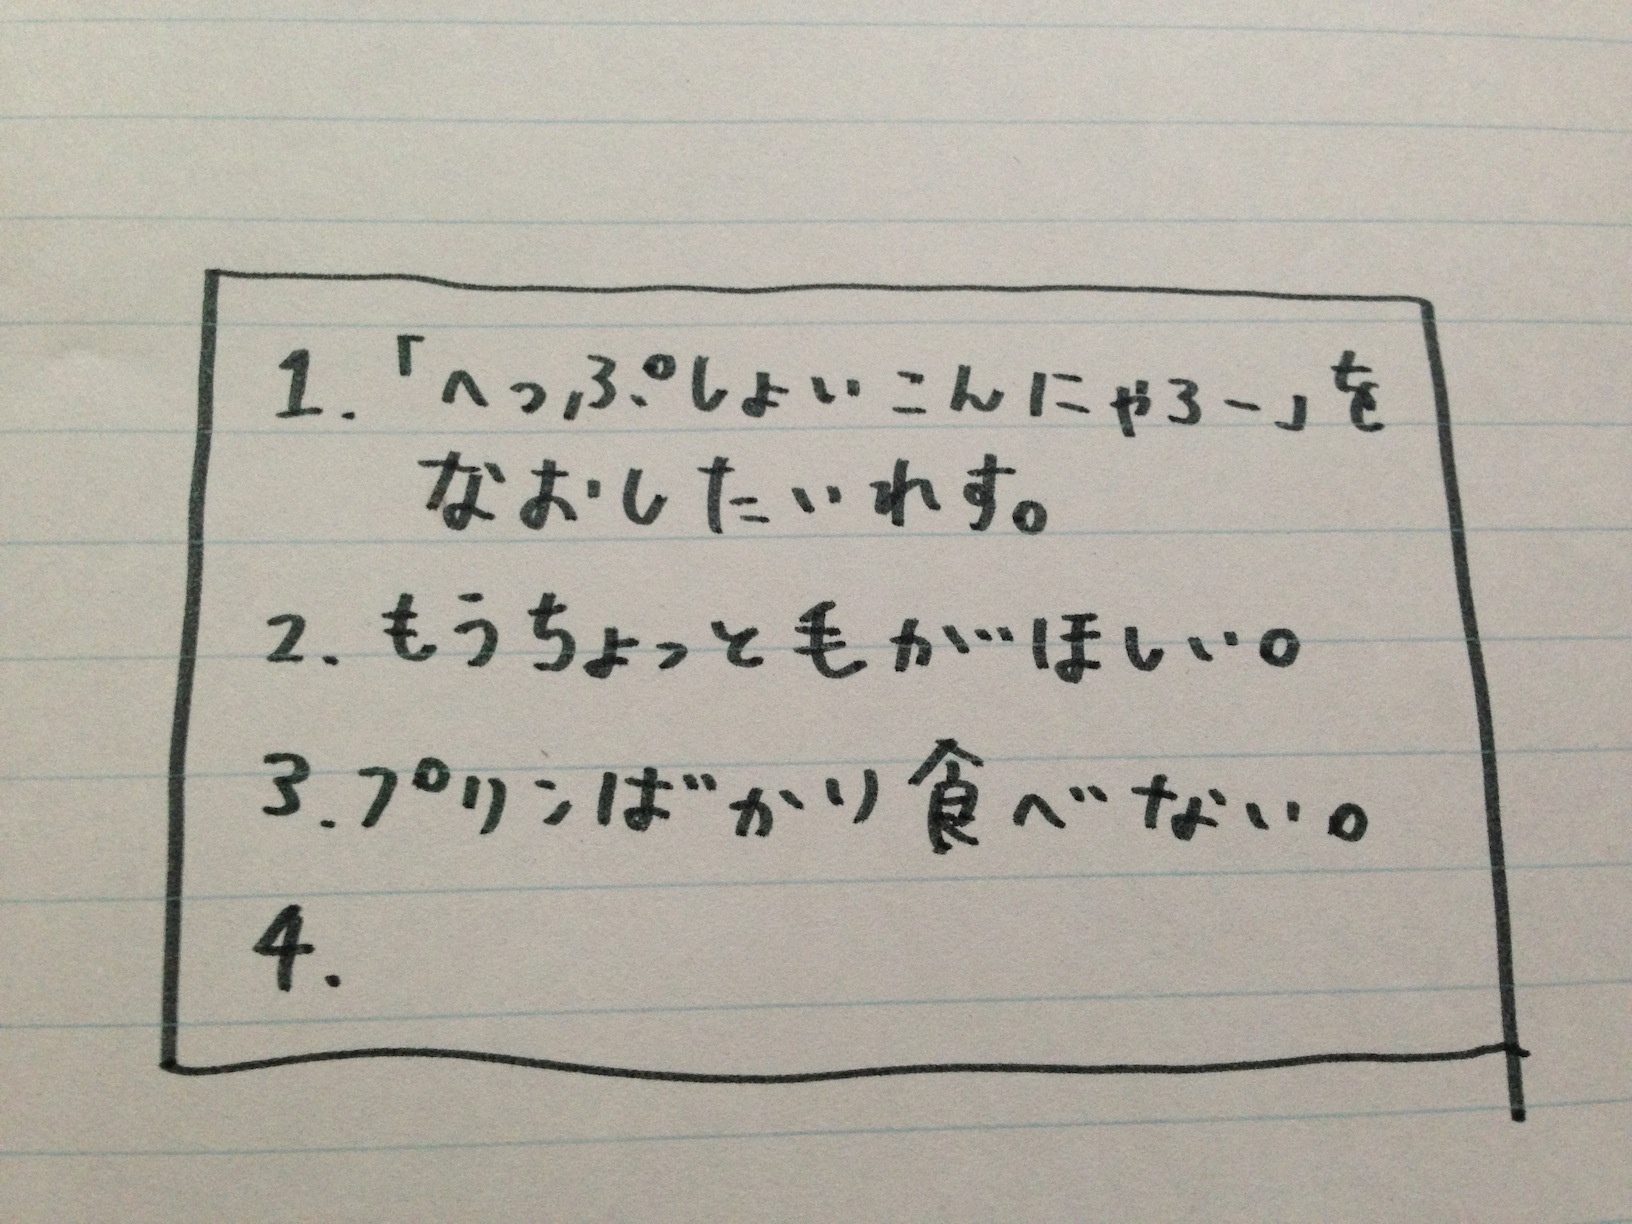 1.「へっぷしょいこんにゃろー」を
なおしたいれす。
2.もうちょっと毛がほしい。
3.プリンばかり食べない。
4.